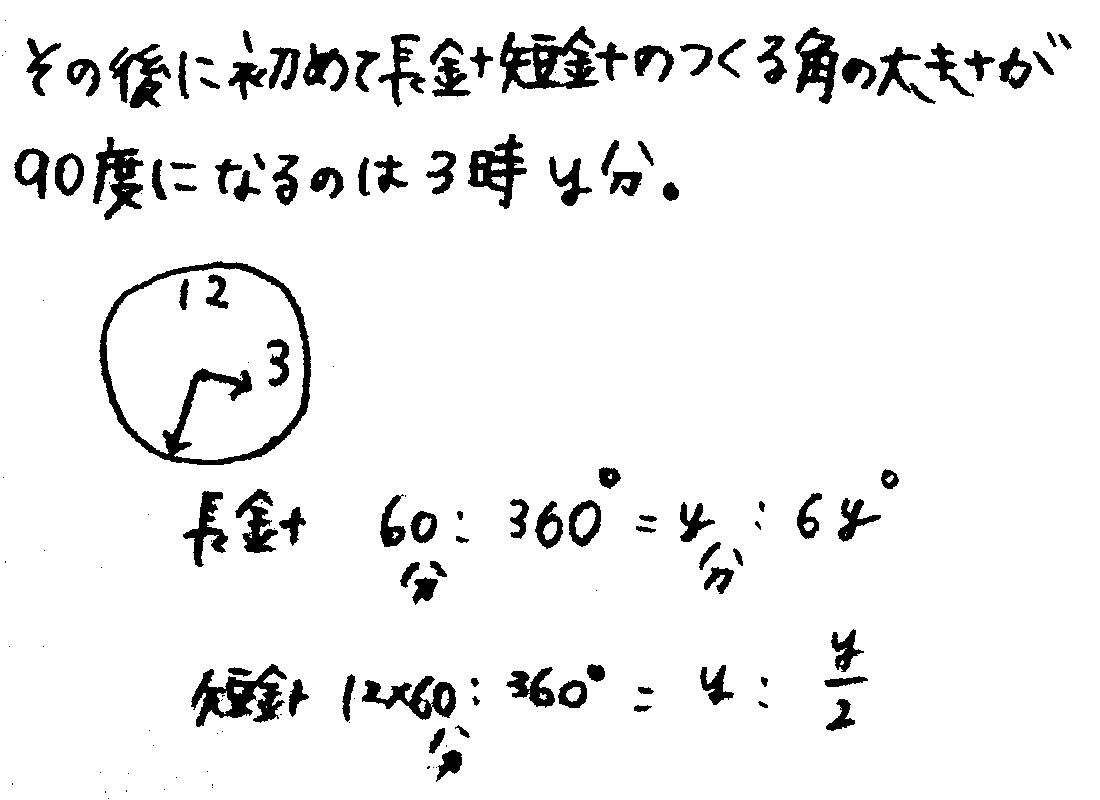 その後に初めて長針短針のつくる角の大きさが
90度になるのは3時y分。
12
3
長針 60分:360°=y分:6y°
短針 12×60分:360°=y:y/2